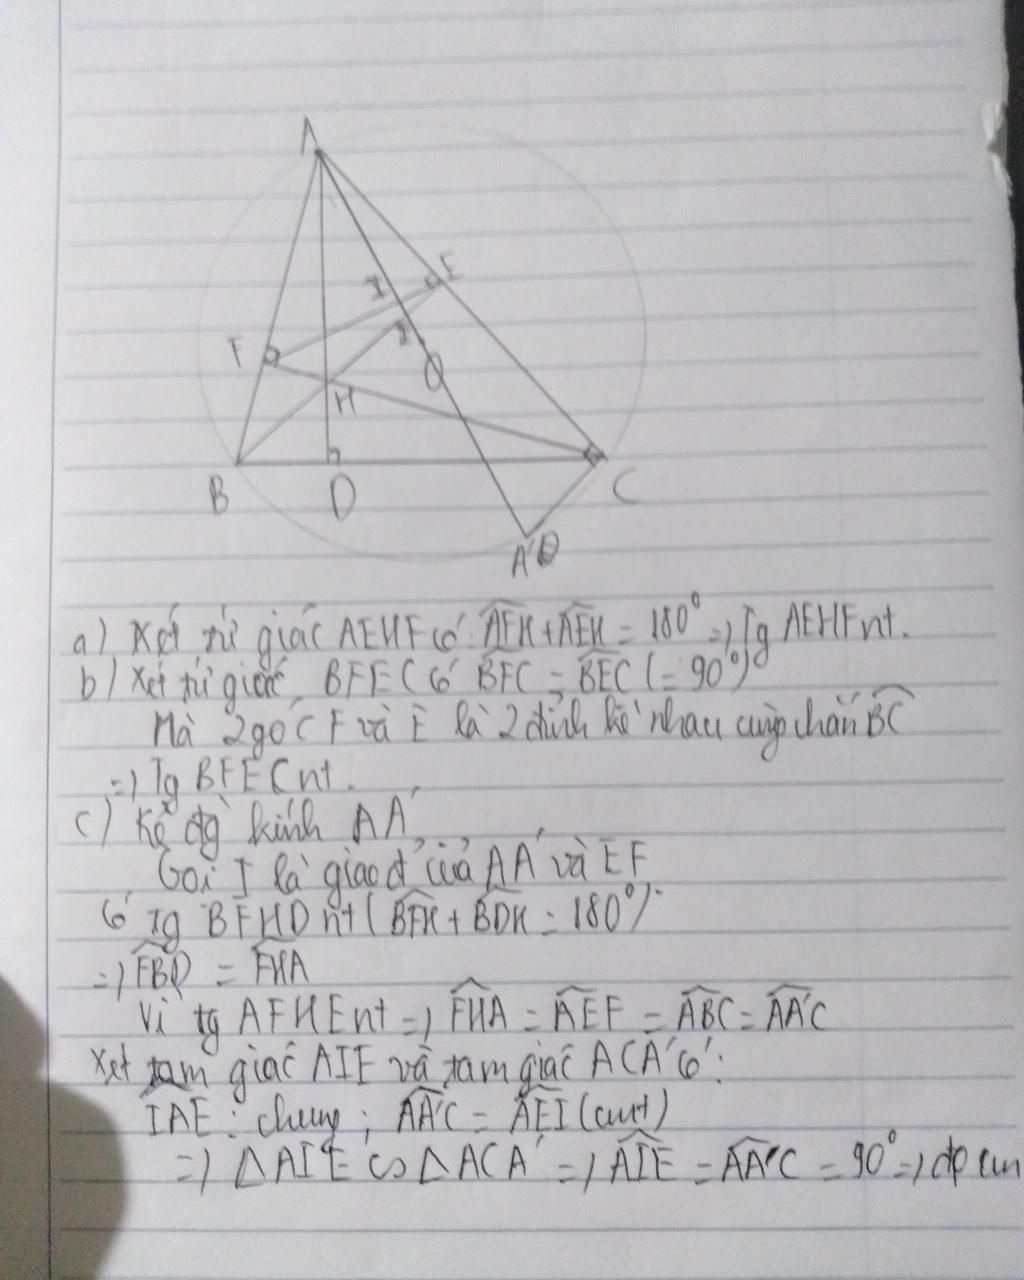 A
E
I
I
F
O
H
B
D
C
A'
a) Xét tứ giác AEHF có: AFH + AEH = 180° => Tg AEHF nt.
b) Xét tứ giác BFEC có BFC = BEC (= 90°)
Mà 2 góc F và E là 2 đỉnh kề nhau cùng chắn BC
=> Tg BFEC nt.
c) Kẻ đg kính AA'
Gọi I là giao đ' của AA' và EF
Có Tg BFHD nt (BFH + BDH = 180°)
=> FBD = FHA
Vì tg AFHE nt => FHA = AEF = ABC = AA'C
Xét tam giác AIE và tam giác ACA' có:
IAE : chung ; AA'C = AEI (cmt)
=> ΔAIE ∽ ΔACA' => AIE = AA'C = 90° => đpcm